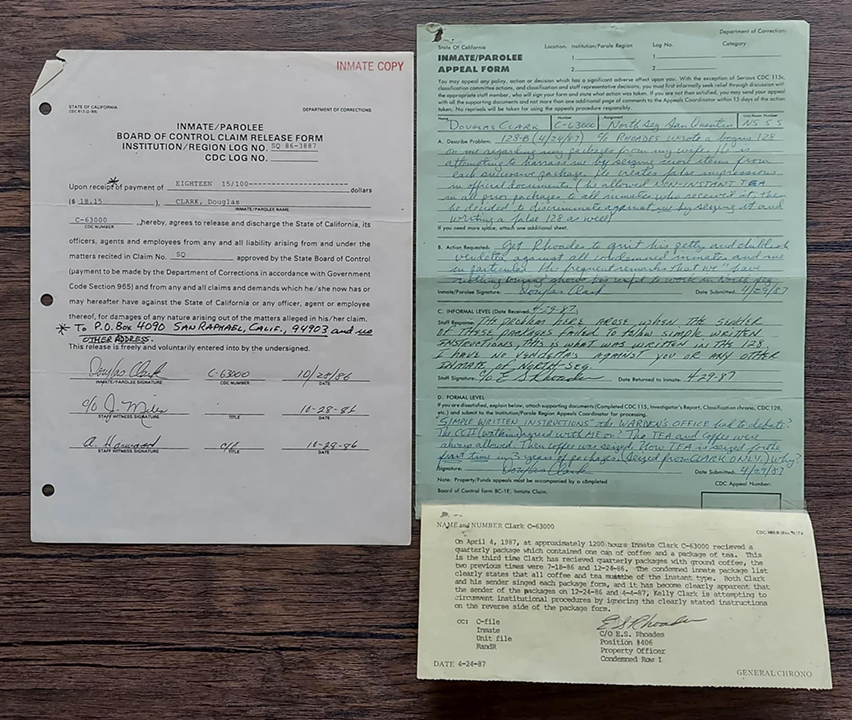 INMATE COPY
STATE OF CALIFORNIA
DEPARTMENT OF CORRECTIONS
INMATE/PAROLEE
BOARD OF CONTROL CLAIM RELEASE FORM
INSTITUTION/REGION LOG NO. SQ 86-3887
CDC LOG NO.
Upon receipt of payment of EIGHTEEN 15/100 dollars
($ 18.15 ), CLARK, Douglas
INMATE/PAROLEE NAME
C-63000 ,hereby, agrees to release and discharge the State of California, its
CDC NUMBER
officers, agents and employees from any and all liability arising from and under the
matters recited in Claim No. SQ approved by the State Board of Control
(payment to be made by the Department of Corrections in accordance with Government
Code Section 965) and from any and all claims and demands which he/she now has or
may hereafter have against the State of California or any officer, agent or employee
thereof, for damages of any nature arising out of the matters alleged in his/her claim.
* To P.O. Box 4090 SAN RAPHAEL, CALIF., 94903 and no
OTHER ADDRESS.
This release is freely and voluntarily entered into by the undersigned.
Douglas Clark C-63000 10/28/86
INMATE/PAROLEE SIGNATURE CDC NUMBER DATE
c/o J. Miles 10-28-86
STAFF WITNESS SIGNATURE TITLE DATE
A. Harwood c/o 10-28-86
STAFF WITNESS SIGNATURE TITLE DATE
State Of California
Location: Institution/Parole Region Log No. Category
Department of Corrections
INMATE/PAROLEE
APPEAL FORM
1
1
2
2
You may appeal any policy, action or decision which has a significant adverse affect upon you. With the exception of Serious CDC 115s,
classification committee actions, and classification and staff representative decisions, you must first informally seek relief through discussion with
the appropriate staff member, who will sign your form and state what action was taken. If you are not then satisfied, you may send your appeal
with all the supporting documents and not more than one additional page of comments to the Appeals Coordinator within 15 days of the action
taken. No reprisals will be taken for using the appeals procedure responsibly.
Name Number Assignment Unit/Room Number
DOUGLAS CLARK C-63000 North Seg San Quentin NS 55
A. Describe Problem: 128-B (4/24/87) c/o RHOADES wrote a bogus 128
on me regarding my packages from my wife. He is
attempting to harrass me by seizing more items from
each successive package. He creates false impressions
in official documents (he allowed NON-INSTANT TEA
in all prior packages to all inmates who received it then
he decided to discriminate against me by seizing it and
writing a false 128 as well)
If you need more space, attach one additional sheet.
B. Action Requested: Get Rhoades to quit his petty and
vendetta against all condemned inmates and me
in particular. His frequent remarks that we "have
nothing coming" shows his unfit to work in North Seg.
Inmate/Parolee Signature: Douglas Clark Date Submitted: 4/29/87
C. INFORMAL LEVEL (Date Received: 4-29-87
Staff Response: THE PROBLEM HERE AROSE WHEN THE SENDER
OF THESE PACKAGES FAILED TO FOLLOW SIMPLE WRITTEN
INSTRUCTIONS, THIS IS WHAT WAS WRITTEN IN THE 128.
I HAVE NO VENDETTAS AGAINST YOU OR ANY OTHER
INMATE OF NORTH-SEG.
Staff Signature: c/o E S Rhoades Date Returned to Inmate: 4-29-87
D. FORMAL LEVEL
If you are dissatisfied, explain below, attach supporting documents (Completed CDC 115, Investigator's Report, Classification chrono, CDC 128,
etc.) and submit to the Institution/Parole Region Appeals Coordinator for processing.
SIMPLE WRITTEN INSTRUCTIONS the WARDEN'S OFFICE had to debate?
The CCII agreed with ME on? The TEA and coffee were
always allowed. Then coffee was seized. Now TEA is seized for the
first time in 3 years of packages. (Seized from CLARK ONLY.) Why?
Signature: Douglas Clark Date Submitted: 4/29/87
Note: Property/Funds appeals must be accompanied by a completed
Board of Control form BC-1E, Inmate Claim.
CDC Appeal Number:
NAME and NUMBER Clark C-63000
On April 4, 1987, at approximately 1200 hours Inmate Clark C-63000 recieved a
quarterly package which contained one can of coffee and a package of tea. This
is the third time Clark has recieved quarterly packages with ground coffee, the
two previous times were 7-18-86 and 12-24-86. The condemned inmate package list
clearly states that all coffee and tea must be of the instant type. Both Clark
and his sender singed each package form, and it has become clearly apparent that
the sender of the packages on 12-24-86 and 4-4-87, Kelly Clark is attempting to
circumvent institutional procedures by ignoring the clearly stated instructions
on the reverse side of the package form.
CC: C-file
Inmate
Unit file
RandR
E S Rhoades
C/O E.S. Rhoades
Position #406
Property Officer
Condemned Row I
DATE 4-24-87
GENERAL CHRONO